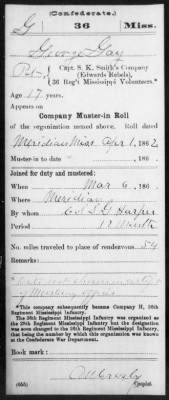 (Confederate.)
G 36 Miss.
George Gay
Pvt, Capt. S. K. Smith's Company
(Edwards Rebels),
36 Reg't Mississippi Volunteers.*
Age 17 years.
Appears on
Company Muster-in Roll
of the organization named above. Roll dated
Meridian Miss Apr 1, 1862.
Muster-in to date , 186 .
Joined for duty and mustered:
When Mar 6, 186 .
Where Meridian
By whom Harper
Period 12 Month
No. miles traveled to place of rendezvous 54
Remarks:
of Mustering officer
*This company subsequently became Company H, 36th
Regiment Mississippi Infantry.
The 36th Regiment Mississippi Infantry was organized as
the 29th Regiment Mississippi Infantry but the designation
was soon changed to the 36th Regiment Mississippi Infantry,
that being the number by which this organization was known
at the Confederate War Department.
Book mark:
(655)
Copyist.